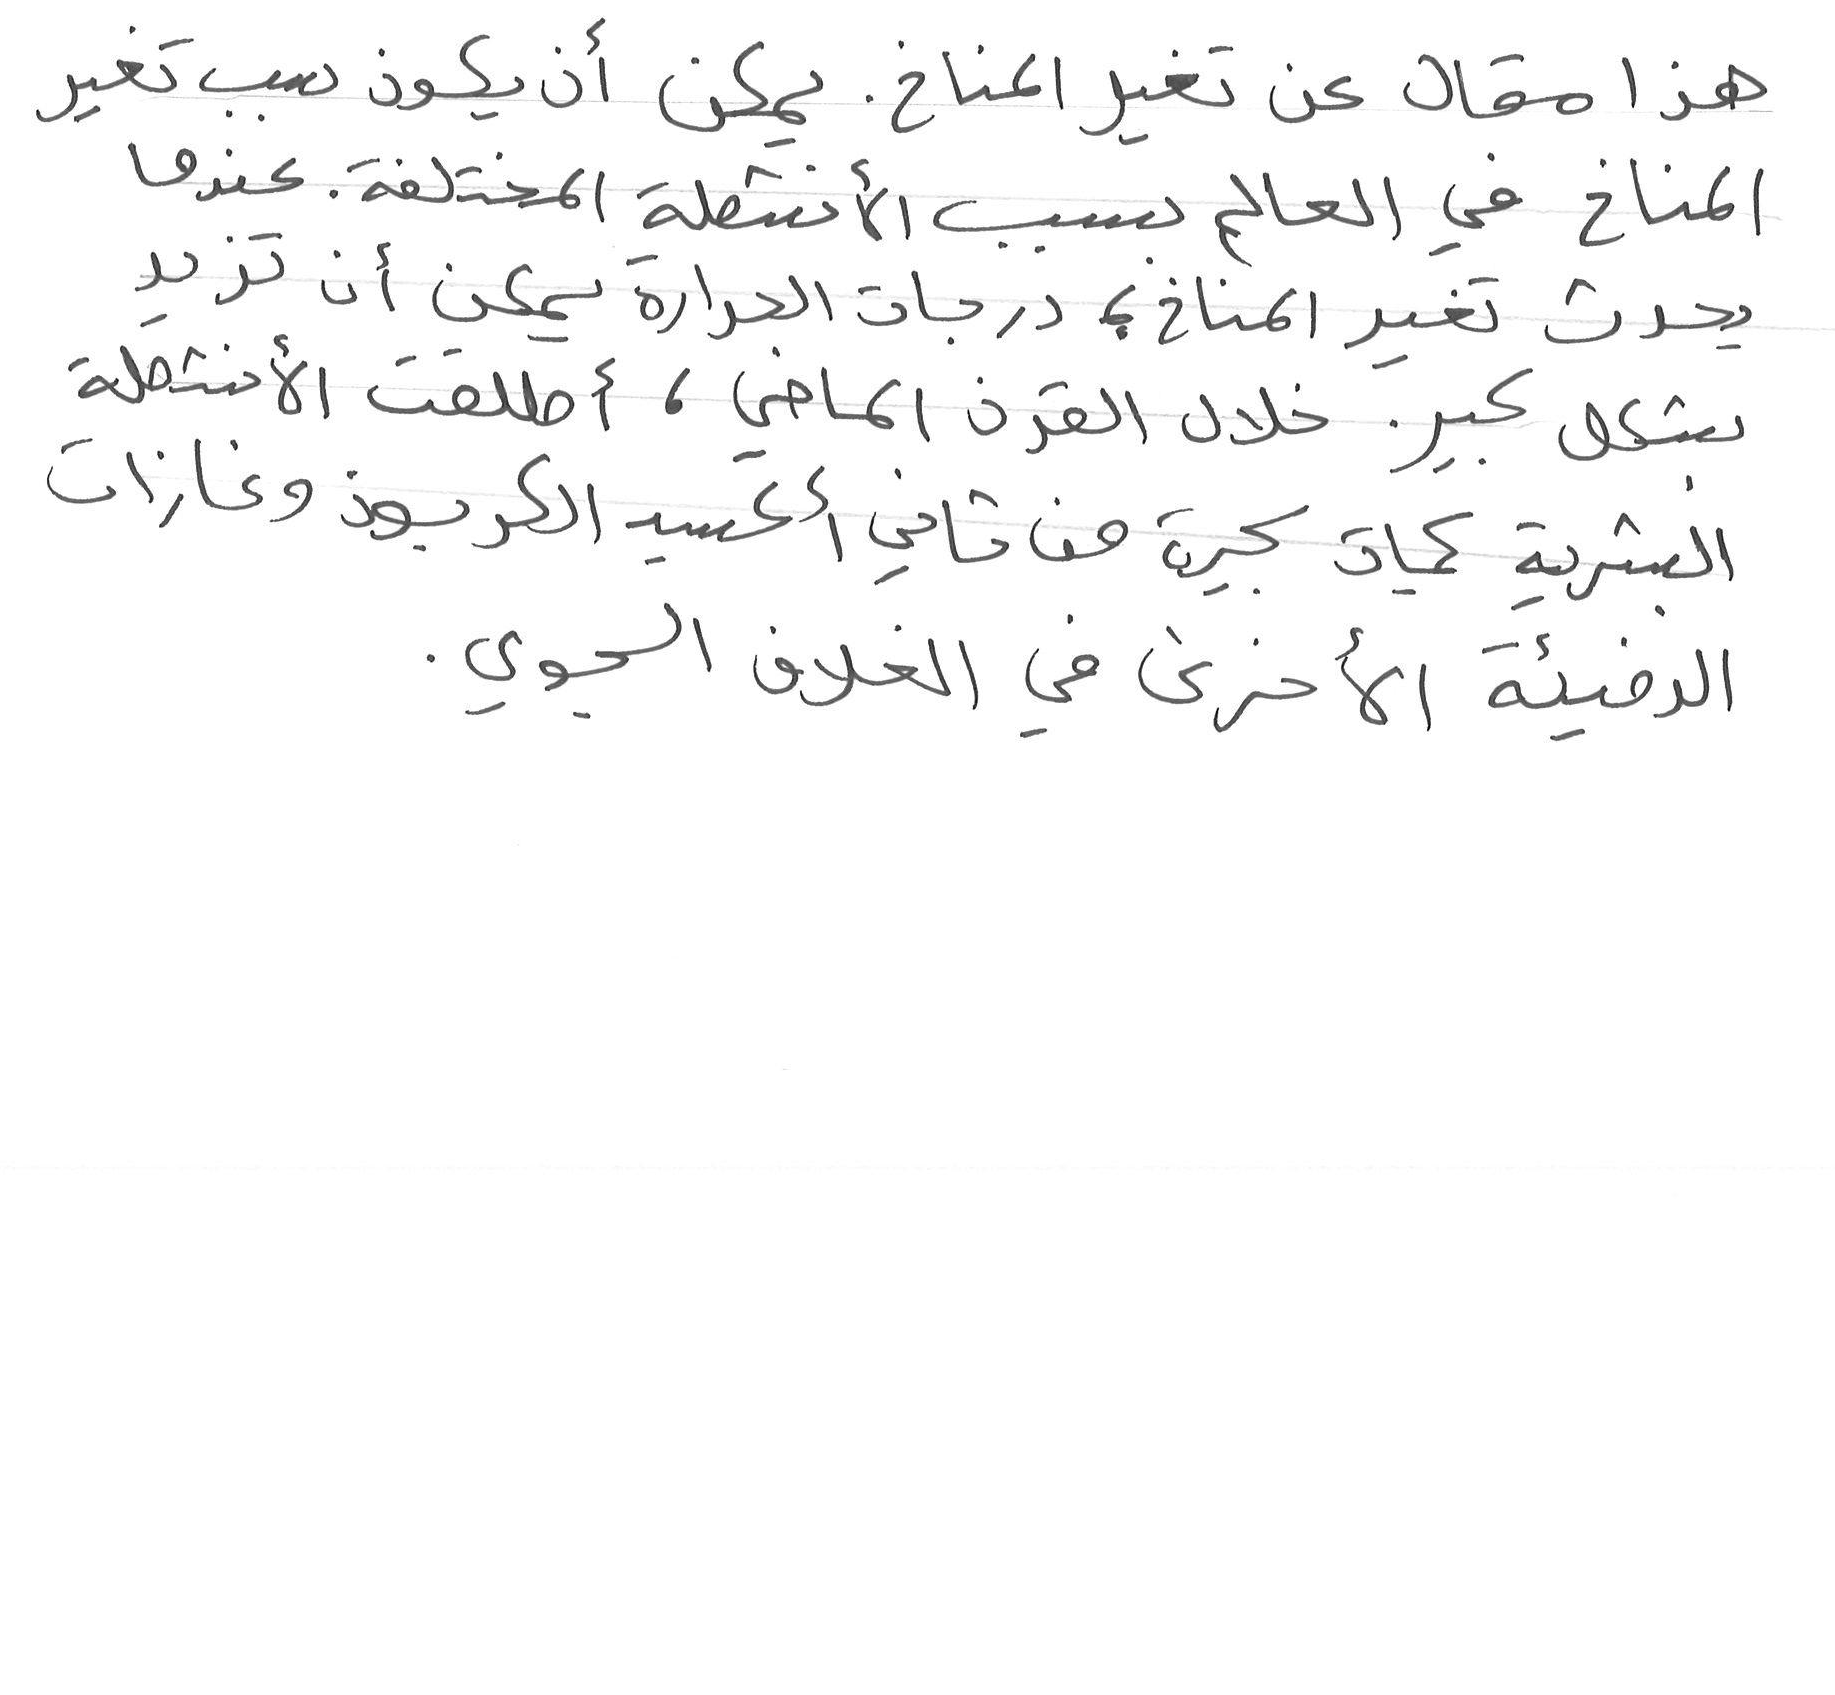 هذا مقال عن تغير المناخ. يمكن أن يكون سبب تغير
المناخ في العالم بسبب الأنشطة المختلفة. عندما
يحدث تغير المناخ، درجات الحرارة يمكن أن تزيد
بشكل كبير. خلال القرن الماضي، أطلقت الأنشطة
البشرية كميات كبيرة من ثاني أكسيد الكربون وغازات
الدفيئة الأخرى في الغلاف الجوي.